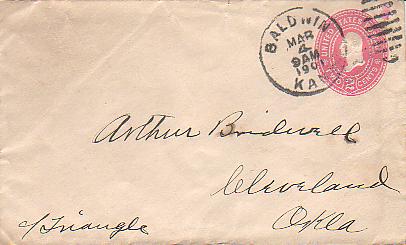 BALDWIN
MAR
4
9AM
KAN
UNITED STATES
2 CENTS 2
Arthur Bridwell
Cleveland
Okla
c/Triangle